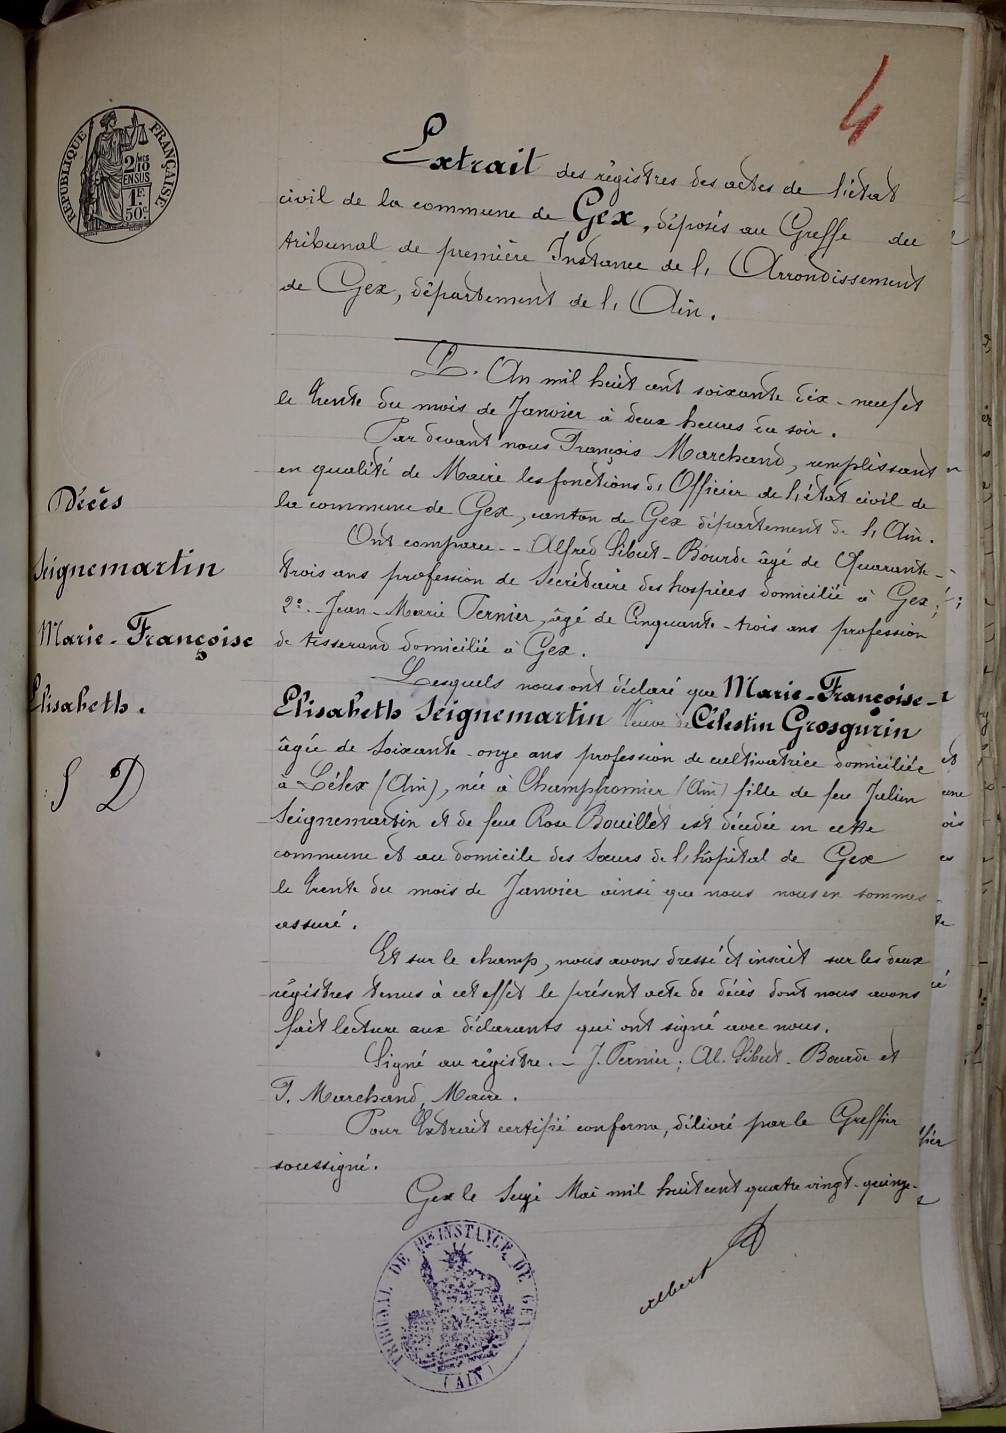 4
RÉPUBLIQUE FRANÇAISE
2/10 MES
EN SUS
1F.
50c
Extrait des régistres des actes de l'état
civil de la commune de Gex, déposés au Greffe du
tribunal de première Instance de l'Arrondissement
de Gex, département de l'Ain.
L'An mil huit cent soixante dix-neuf et
le trente du mois de Janvier à deux heures du soir.
Par devant nous François Marchand, remplissant
en qualité de Maire les fonctions d'Officier de l'état civil de
la commune de Gex, canton de Gex département de l'Ain.
Ont comparu - Alfred Sibut-Bourde âgé de Quarante-
trois ans profession de Secrétaire des hospices domicilié à Gex;
2º - Jean-Marie Pernier, âgé de Cinquante-trois ans profession
de tisserand domicilié à Gex.
Lesquels nous ont déclaré que Marie-Françoise-
Elisabeth Seignemartin Veuve de Célestin Grosgurin
âgée de Soixante-onze ans profession de cultivatrice domiciliée
à Lélex (Ain), née à Champfromier (Ain) fille de feu Julien
Seignemartin et de feue Rose Bouillet est décédée en cette
commune et au domicile des Sœurs de l'hôpital de Gex
le trente du mois de Janvier ainsi que nous nous en sommes
assuré.
Et sur le champ, nous avons dressé et inscrit sur les deux
régistres tenus à cet effet le présent acte de décès dont nous avons
fait lecture aux déclarants qui ont signé avec nous.
Signé au régistre. - J. Pernier; Al. Sibut-Bourde et
F. Marchand, Maire.
Pour Extrait certifié conforme, délivré par le Greffier
soussigné.
Gex le Seize Mai mil huit cent quatre vingt-quinze-
Décès
Seignemartin
Marie-Françoise
Elisabeth.
S D
TRIBUNAL DE 1RE INSTANCE DE GEX
(AIN)